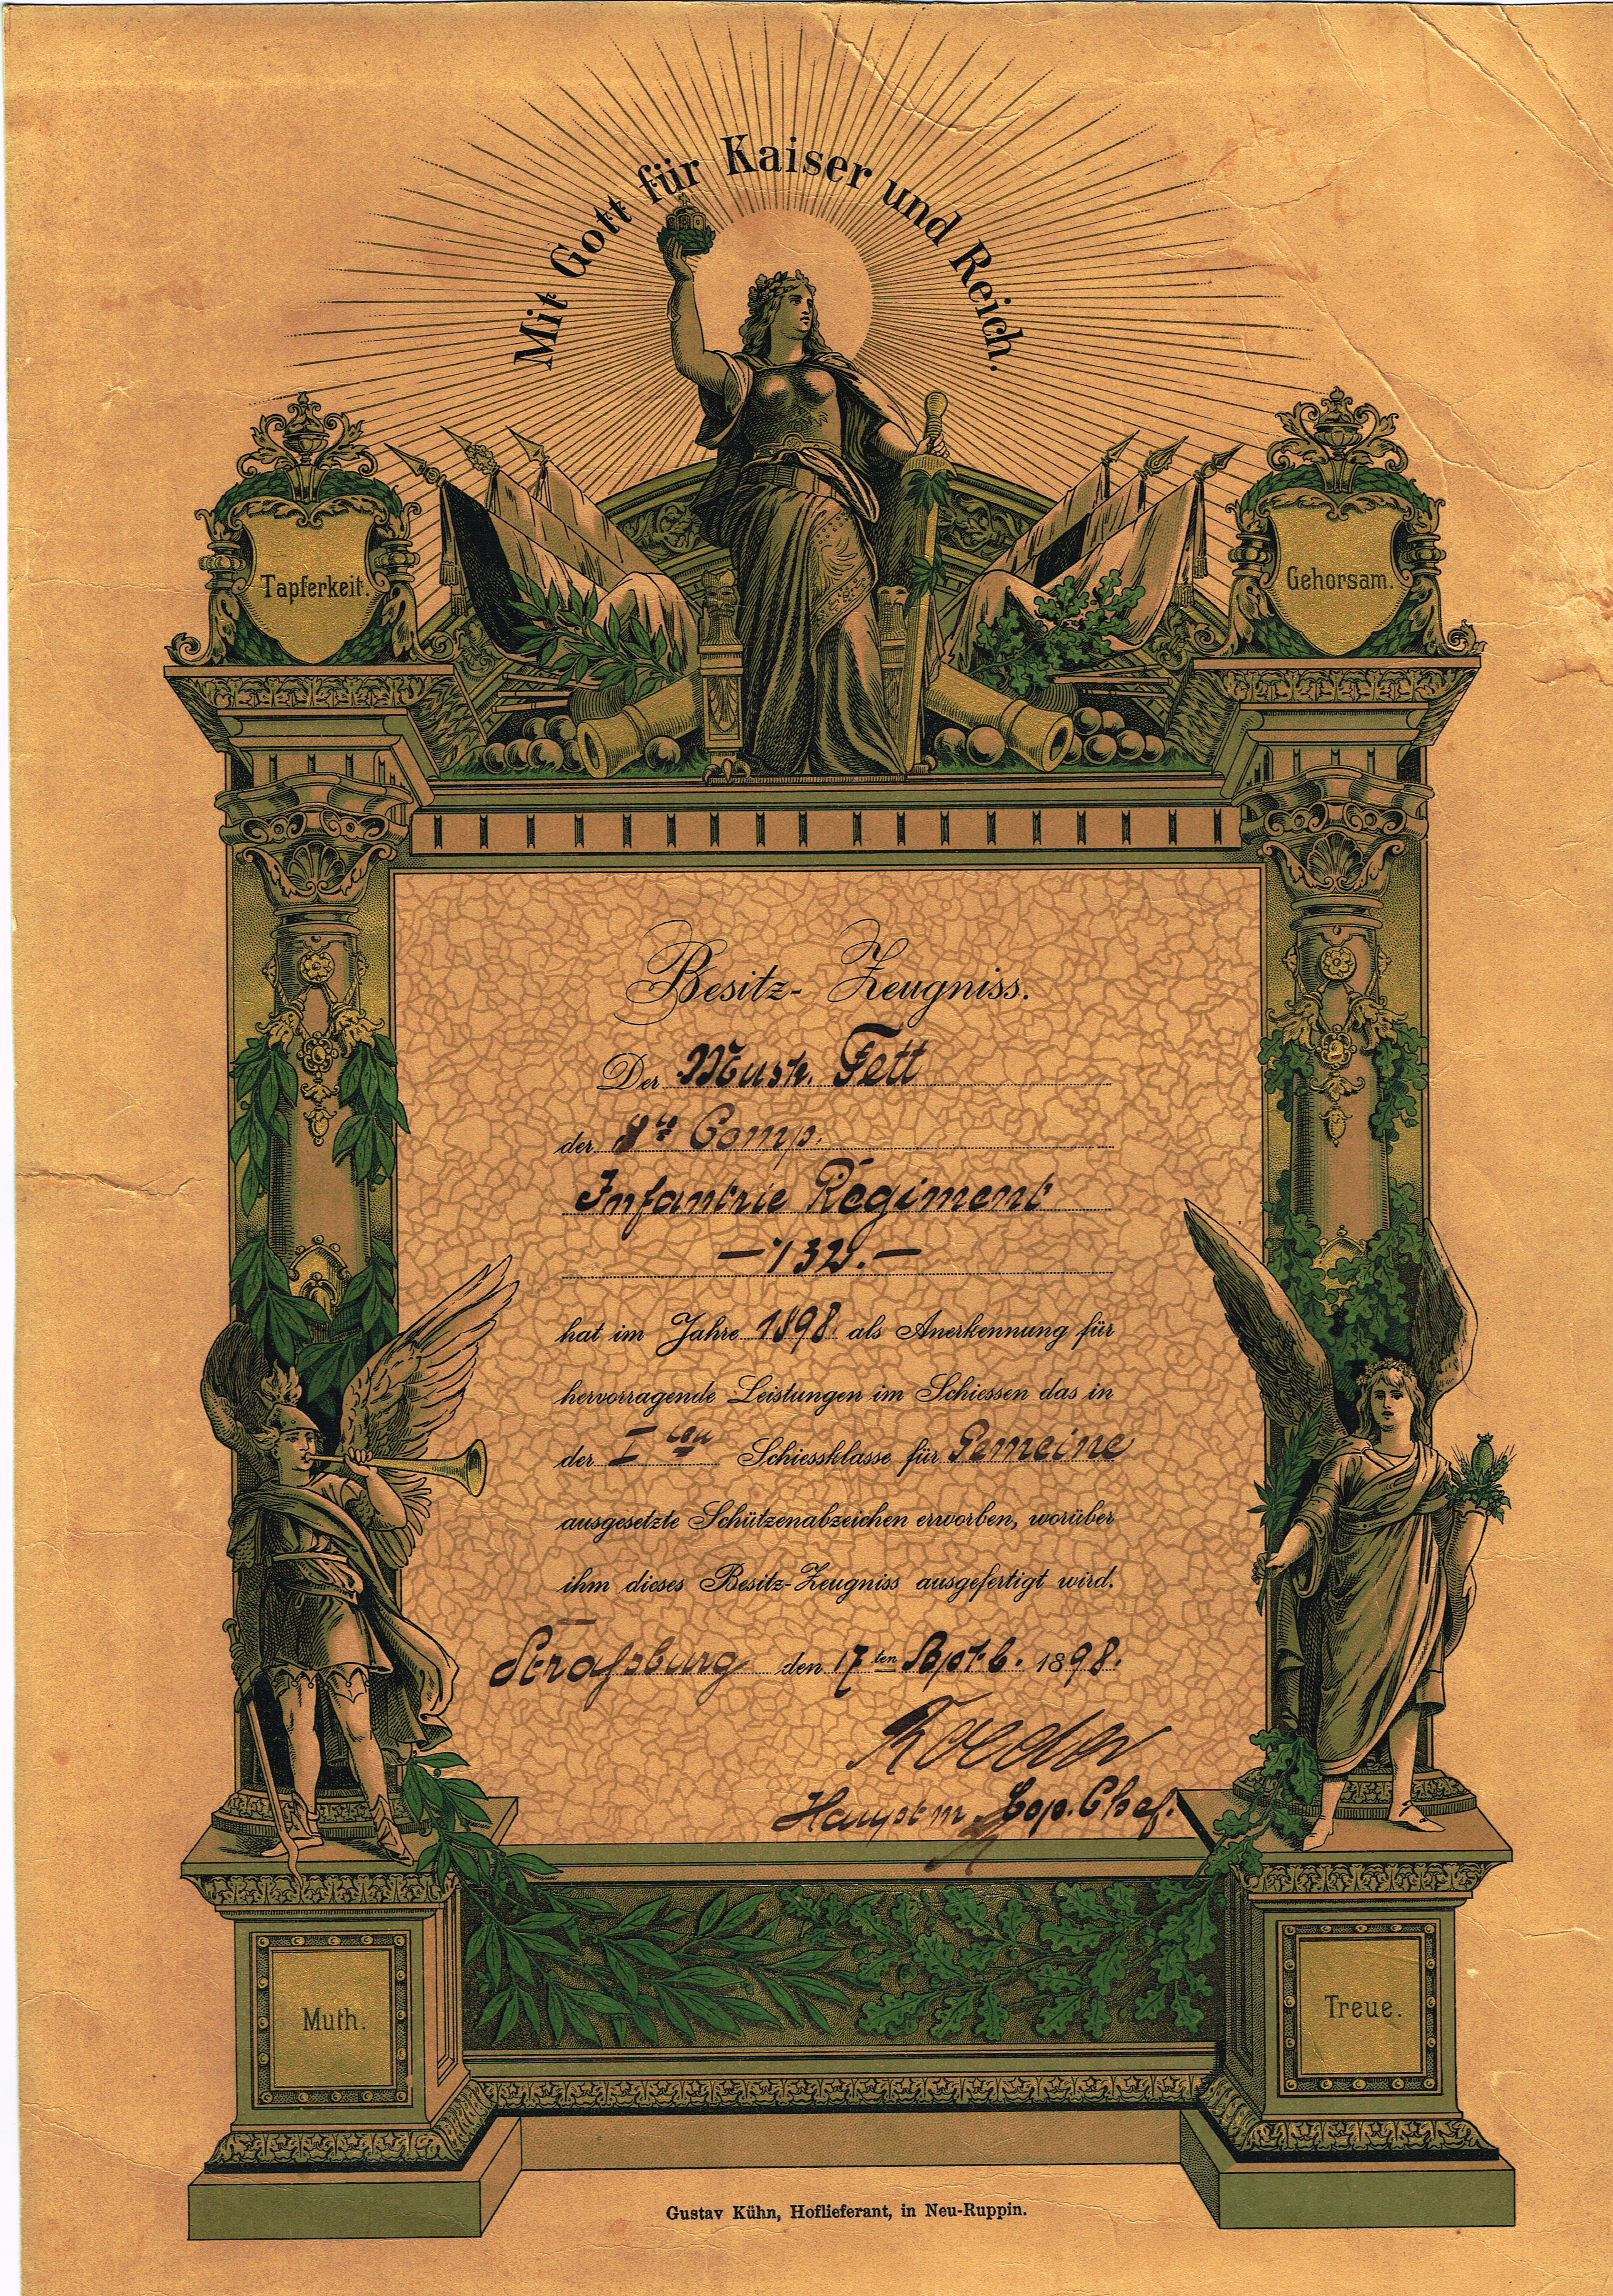 Mit Gott für Kaiser und Reich.
Tapferkeit.
Gehorsam.
Besitz-Zeugniss.
Der Musk. Fett
der 8ten Comp.
Infantrie Regiment
—132.—
hat im Jahre 1898 als Anerkennung für
hervorragende Leistungen im Schiessen das in
der I ten Schiessklasse für Gemeine
ausgesetzte Schützenabzeichen erworben, worüber
ihm dieses Besitz-Zeugniss ausgefertigt wird.
Straßburg den 17ten Septb. 1898.
Roeder
Hauptm. Cop. Chef.
Muth.
Treue.
Gustav Kühn, Hoflieferant, in Neu-Ruppin.